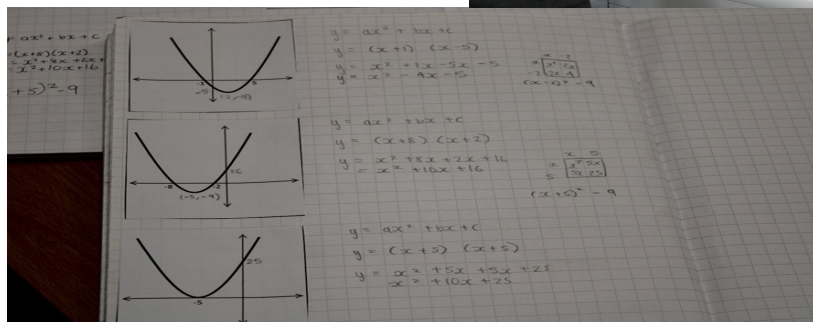 ax² + bx + c
=(x+8)(x+2)
= x² + 8x + 2x +
= x² + 10x + 16
+5)² - 9
-1
5
-5
(2,-9)
y = ax² + bx + c
y = (x+1) (x-5)
y = x² + 1x - 5x - 5
y = x² - 4x - 5
x -2
x x² -2x
-2 -2x 4
(x-2)² - 9
-8
-2
16
(-5,-9)
y = ax² + bx + c
y = (x+8) (x+2)
y = x² + 8x + 2x + 16
= x² + 10x + 16
x 5
x x² 5x
5 5x 25
(x+5)² - 9
25
-5
y = ax² + bx + c
y = (x+5) (x+5)
y = x² + 5x + 5x + 25
x² + 10x + 25